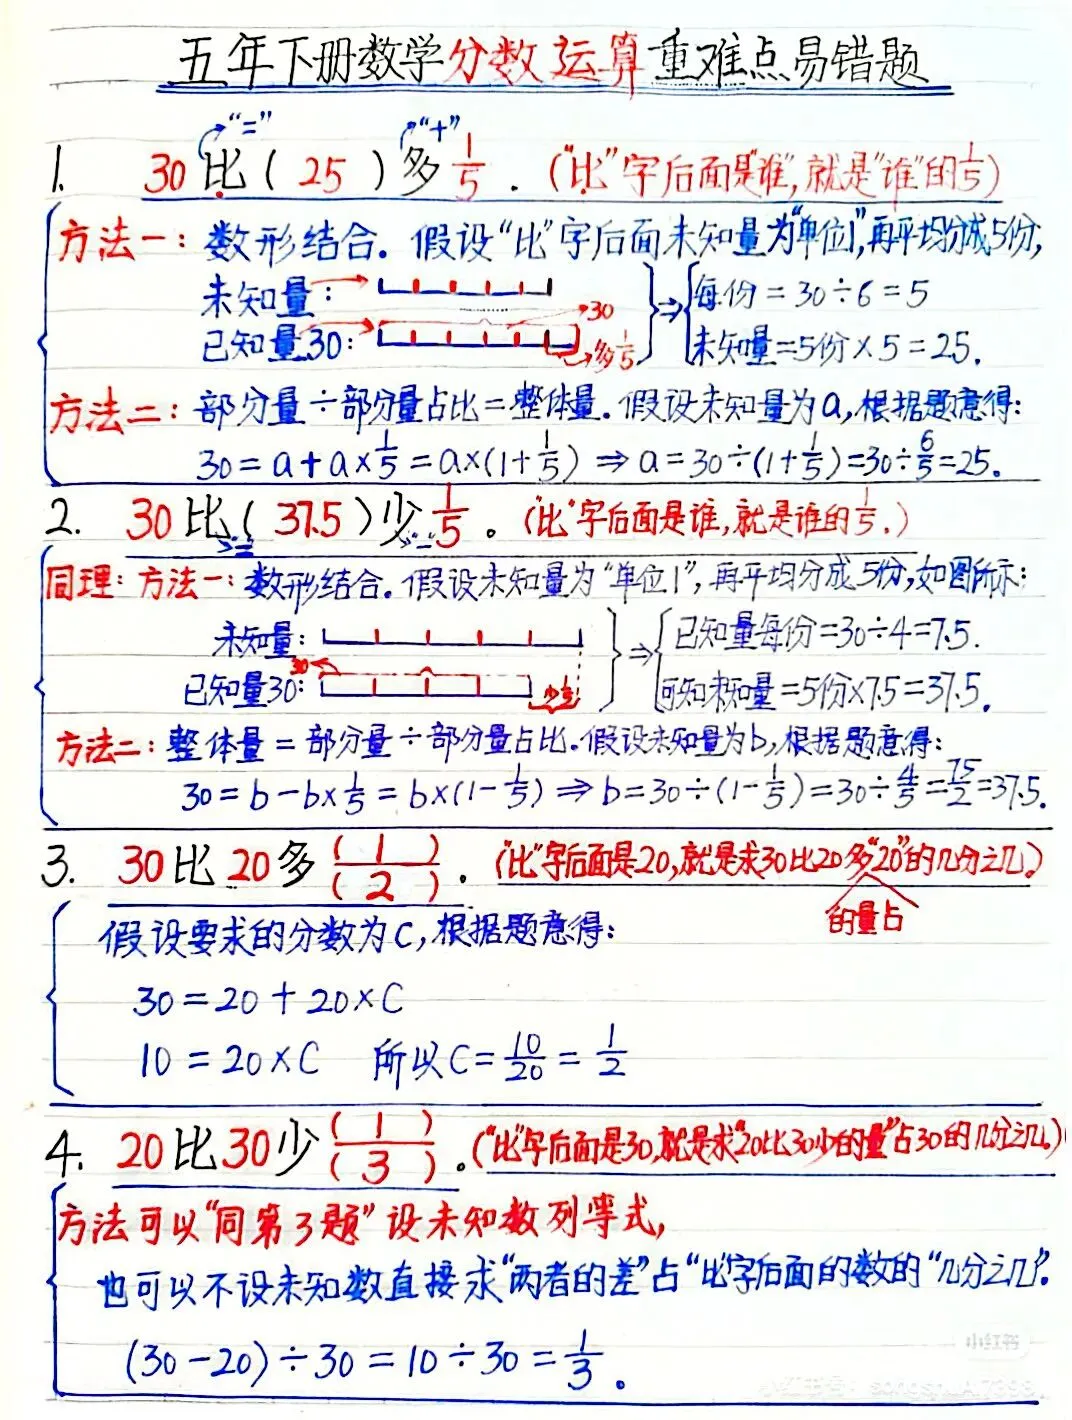 五年下册数学分数运算重难点易错题
“=” “+”
1. 30比(25)多1/5.(“比”字后面是“谁”,就是“谁”的1/5)
方法一:数形结合.假设“比”字后面未知量为“单位1”,再平均分成5份,
未知量: 每份=30÷6=5
30
已知量30: 多1/5 未知量=5份×5=25.
方法二:部分量÷部分量占比=整体量.假设未知量为a,根据题意得:
30=a+a×1/5=a×(1+1/5)⇒a=30÷(1+1/5)=30÷6/5=25.
2. 30比(37.5)少1/5。(“比”字后面是谁,就是谁的1/5.)
“=” “-”
同理:方法一:数形结合.假设未知量为“单位1”,再平均分成5份,如图所示:
未知量: 已知量每份=30÷4=7.5.
30
已知量30: 少1/5 可知未知量=5份×7.5=37.5.
方法二:整体量=部分量÷部分量占比.假设未知量为b,根据题意得:
30=b-b×1/5=b×(1-1/5)⇒b=30÷(1-1/5)=30÷4/5=75/2=37.5.
3. 30比20多(1)/(2).(“比”字后面是20,就是求30比20多“20”的几分之几.)
的量占
假设要求的分数为C,根据题意得:
30=20+20×C
10=20×C 所以C=10/20=1/2
4. 20比30少(1)/(3)。(“比”字后面是30,就是求“20比30少的量”占30的几分之几。)
方法可以“同第3题”设未知数列等式,
也可以不设未知数直接求“两者的差”占“比”字后面的数的“几分之几”.
(30-20)÷30=10÷30=1/3。
小红书
小红书号: